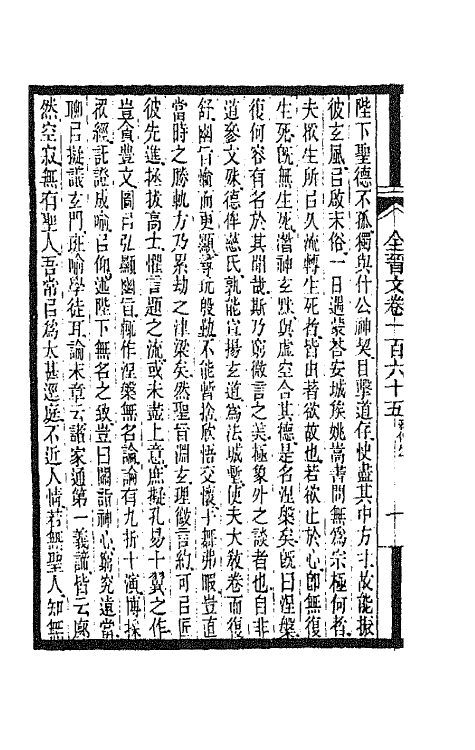 全晉文卷一百六十五 十
陛下聖德不孤獨與什公神契目擊道存快盡其中方寸故能振
彼玄風㠯啟末俗一日遇蒙荅安城侯姚嵩書問無爲宗極何者
夫衆生所㠯久流轉生死者皆由著欲故也若欲止於心卽無復
生死旣無生死潛神玄默與虛空合其德是名涅槃矣旣曰涅槃
復何容有名於其間哉斯乃窮微言之美極象外之談者也自非
道參文殊德侔慈氏孰能宣揚玄道爲法城塹使夫大敎卷而復
舒幽旨淪而更顯尋玩殷勤不能暫捨欣悟交懷手舞弗暇豈直
當時之勝軌方乃累劫之津梁矣然聖旨淵玄理微言約可㠯匠
彼先進拯拔高士懼言題之流或未盡上意庶擬孔易十翼之作
豈貪豐文圖㠯弘顯幽旨輒作涅槃無名論論有九折十演博採
衆經託證成喻㠯仰述陛下無名之致豈曰關詣神心窮究遠當
聊㠯擬議玄門班喻學徒耳論末章云諸家通第一義諦皆云廓
然空寂無有聖人吾常㠯爲太甚逕庭不近人情若無聖人知無